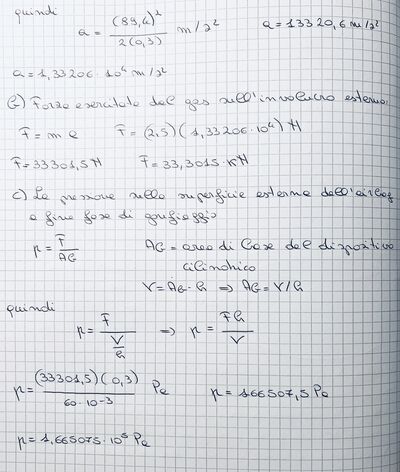 quindi
a = (89,4)² / 2(0,3) m/s² a = 13320,6 m/s²
a = 1,33206 · 10⁴ m/s²
b) Forza esercitata dal gas sull'involucro esterno.
F = m a F = (2,5)(1,33206·10⁴) N
F = 33301,5 N F = 33,3015 kN
c) La pressione sulla superficie esterna dell'airbag
a fine fase di gonfiaggio
p = F / AB AB = area di base del dispositivo
cilindrico
V = AB · h ⇒ AB = V/h
quindi
p = F / (V/h) ⇒ p = Fh / V
p = (33301,5)(0,3) / 60·10⁻³ Pa p = 166507,5 Pa
p = 1,665075 · 10⁵ Pa